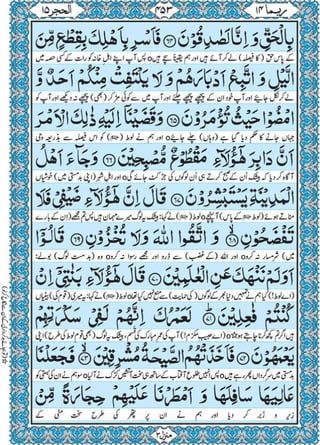 ربما ۱۴ ۴۵۳ الحجر ۱۵
بِالْحَقِّ وَ اِنَّا لَصٰدِقُوْنَ ﴿۶۴﴾ فَاَسْرِ بِاَهْلِكَ بِقِطْعٍ مِّنَ
کے پاس حق (کا فیصلہ) لے کر آئے ہیں اور ہم یقیناً سچے ہیں o پس آپ اپنے اہل خانہ کو رات کے کسی حصہ میں
الَّيْلِ وَ اتَّبِعْ اَدْبَارَهُمْ وَ لَا يَلْتَفِتْ مِنْكُمْ اَحَدٌ وَّ
لے کر نکل جائیے اور آپ خود ان کے پیچھے پیچھے چلئے اور آپ میں سے کوئی مڑ کر (بھی) پیچھے نہ دیکھے اور آپ کو
امْضُوْا حَيْثُ تُؤْمَرُوْنَ ﴿۶۵﴾ وَ قَضَيْنَاۤ اِلَيْهِ ذٰلِكَ الْاَمْرَ
جہاں جانے کا حکم دیا گیا ہے (وہاں) چلے جائیے o اور ہم نے لوط (ﷵ) کو اس فیصلہ سے بذریعہ وحی
اَنَّ دَابِرَ هٰۤؤُلَآءِ مَقْطُوْعٌ مُّصْبِحِيْنَ ﴿۶۶﴾ وَ جَآءَ اَهْلُ
آگاہ کر دیا کہ بیشک اُن کے صبح کرتے ہی اُن لوگوں کی جڑ کٹ جائے گی o اور اہلِ شہر (اپنی بدمستی میں) خوشیاں
الْمَدِيْنَةِ يَسْتَبْشِرُوْنَ ﴿۶۷﴾ قَالَ اِنَّ هٰۤؤُلَآءِ ضَيْفِيْ فَلَا
مناتے ہوئے (لوط کے پاس) آ پہنچے o لوط نے کہا: بیشک یہ لوگ میرے مہمان ہیں پس تم مجھے (اِن کے بارے
تَفْضَحُوْنِ ﴿۶۸﴾ وَ اتَّقُوا اللّٰهَ وَ لَا تُخْزُوْنِ ﴿۶۹﴾ قَالُوْۤا
میں) شرمسار نہ کرو o اور اللہ (کے غضب) سے ڈرو اور مجھے رسوا نہ کرو o وہ (بد مست لوگ) بولے:
اَوَ لَمْ نَنْهَكَ عَنِ الْعٰلَمِيْنَ ﴿۷۰﴾ قَالَ هٰۤؤُلَآءِ بَنٰتِيْۤ اِنْ
(اے لوط!) کیا ہم نے تمہیں دنیا بھر کے لوگوں (کی حمایت) سے منع نہیں کیا تھا o لوط نے کہا: یہ میری (قوم کی) بیٹیاں
كُنْتُمْ فٰعِلِيْنَ ﴿۷۱﴾ لَعَمْرُكَ اِنَّهُمْ لَفِيْ سَكْرَتِهِمْ
ہیں اگر تم کچھ کرنا چاہتے ہو o (اے حبیبِ مکرّم!) آپ کی عمرِ مبارک کی قسم، بیشک یہ لوگ (بھی قومِ لوط کی طرح) اپنی
يَعْمَهُوْنَ ﴿۷۲﴾ فَاَخَذَتْهُمُ الصَّيْحَةُ مُشْرِقِيْنَ ﴿۷۳﴾ فَجَعَلْنَا
بدمستی میں سرگرداں پھر رہے ہیں o پس انہیں طلوعِ آفتاب کے ساتھ ہی سخت آتشیں کڑک نے آلیا o سو ہم نے ان کی بستی کو
عَالِيَهَا سَافِلَهَا وَ اَمْطَرْنَا عَلَيْهِمْ حِجَارَةً مِّنْ
زیر و زبر کر دیا اور ہم نے ان پر پتھر کی طرح سخت مٹی کے
منزل ۳